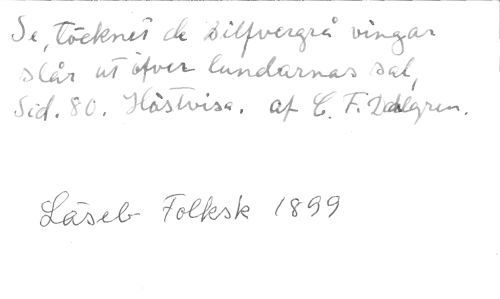 Se, töcknet de silfvergrå vingar
slår ut öfver lundarnas sal,
Sid. 80. Höstvisa. af C. F. Dahlgren.
Läseb Folksk 1899